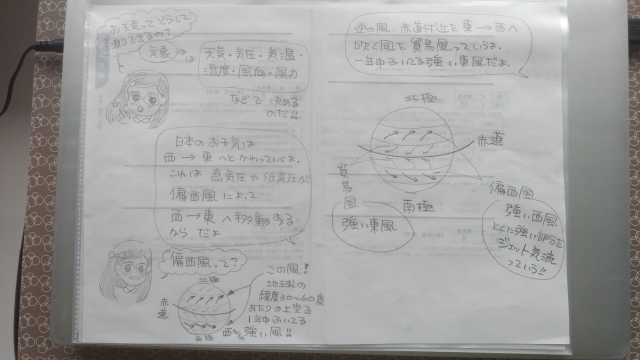 お天気ってどうして
創られるの?
気象
は
天気・気圧・気温・
湿度・風向・風力
などで決める
のだ!!
日本のお天気は
西→東へとかわっていくよ。
これは高気圧や低気圧が
偏西風によって
西→東へ移動する
からだよ
偏西風って?
北極
赤道
南極
この風!
地球の
緯度30〜60度
あたりの上空を
1年中ふいてる
西からの強い風!!
逆の風、赤道付近を東→西へ
吹く風を貿易風っていうよ。
一年中ふいてる強い東風だよ。
北極
赤道
貿易風
南極
偏西風
強い東風
強い西風
とくに強い部分を
ジェット気流
っている!!